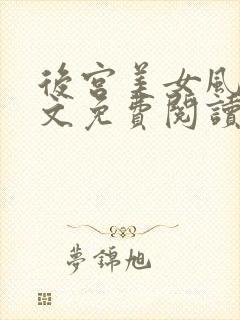 後宮美女風
文免費閱讀
夢錦旭